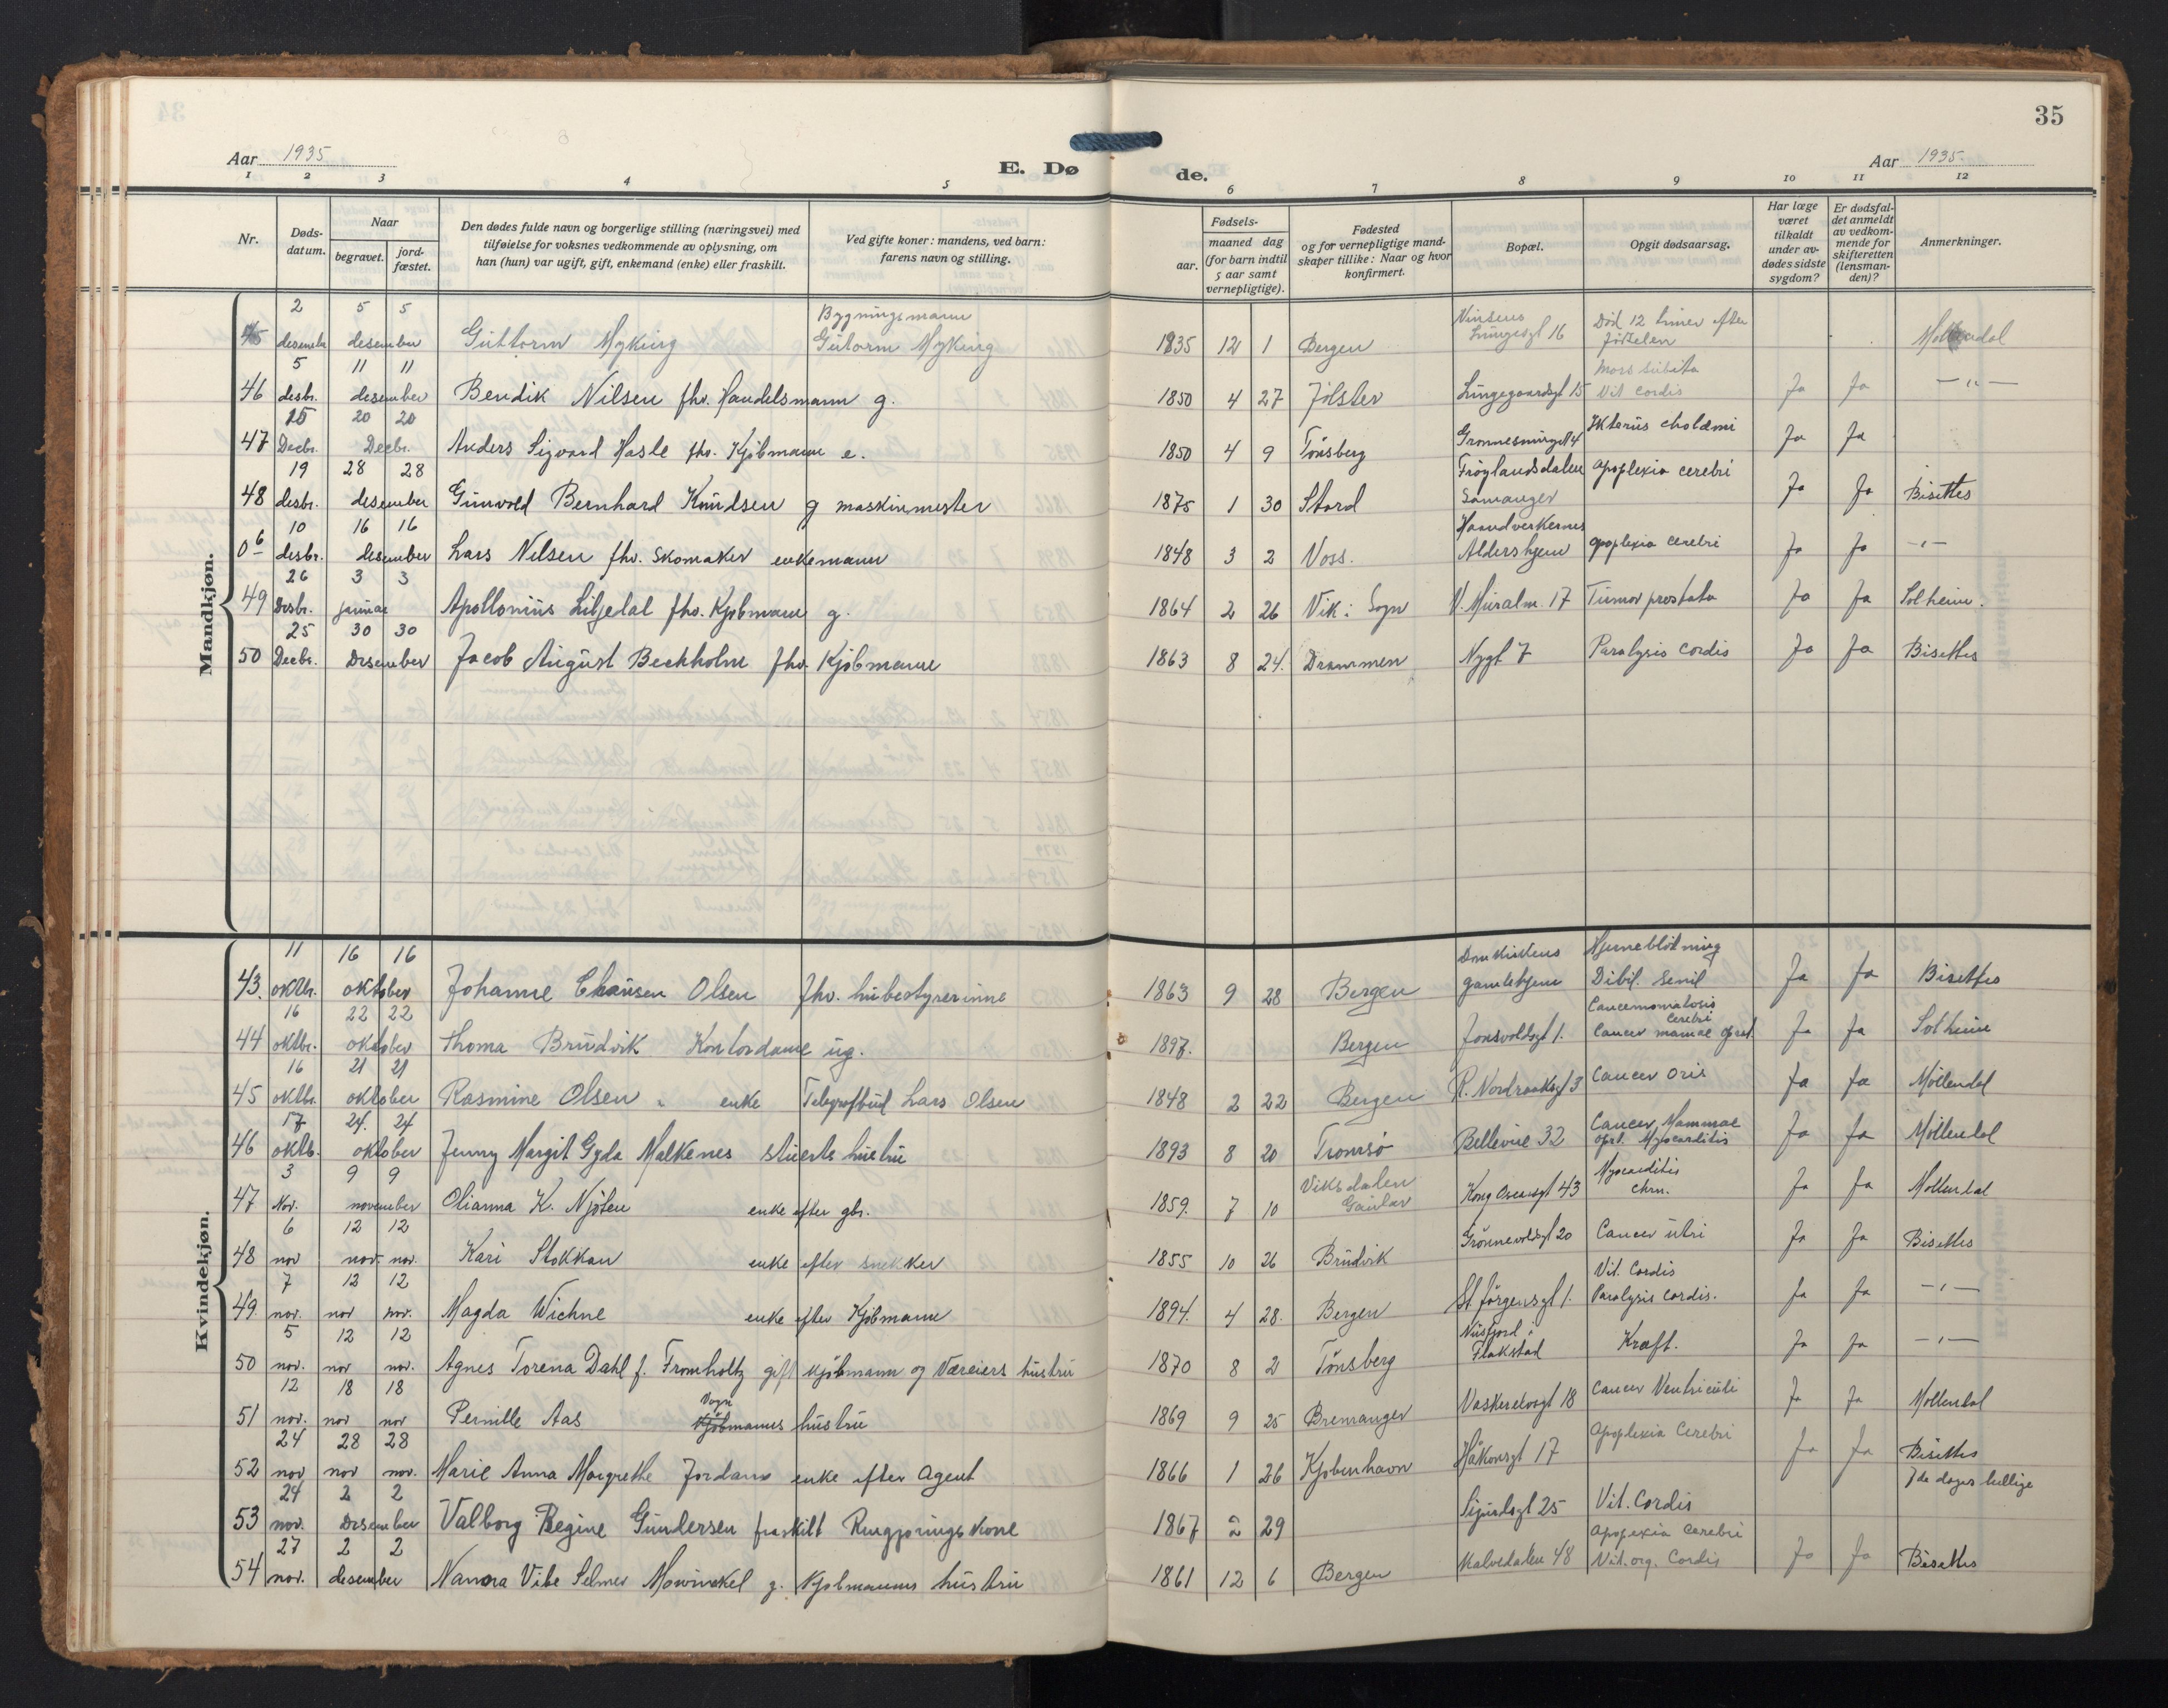 35
Aar 1935
E. Dø de.
Aar 1935.
1 2 3 4 5 6 7 8 9 10 11 12
Nr.
Døds-
datum.
Naar
begravet.
jord-
fæstet.
Den dødes fulde navn og borgerlige stilling (næringsvei) med
tilføielse for voksnes vedkommende av oplysning, om
han (hun) var ugift, gift, enkemand (enke) eller fraskilt.
Ved gifte koner: mandens, ved barn:
farens navn og stilling.
Fødsels-
aar.
maaned dag
(for barn indtil
5 aar samt
vernepligtige).
Fødested
og for vernepligtige mand-
skaper tillike: Naar og hvor
konfirmert.
Bopæl.
Opgit dødsaarsag.
Har læge
været
tilkaldt
under av-
dødes sidste
sygdom?
Er dødsfal-
det anmeldt
av vedkom-
mende for
skifteretten
(lensman-
den)?
Anmerkninger.
Mandkjøn.
2 5 5 Bygningsmann
45 desember desember Guttorm Myking Gutorm Myking 1835 12 1 Bergen Lungegt 16 Död 12 timer efter födselen Møllendal
5 11 11
46 desbr. desember Bendik Nilsen fhv. Handelsmann g. 1850 4 27 Jölster Lungegaardsgt 15 Mors subita Vit cordis Ja Ja —"—
15 20 20
47 Decbr. Decbr. Anders Sigvard Hasle fhv. Kjöbmann e. 1850 4 9 Tönsberg Ikterus cholæmi Ja Ja
19 28 28
48 desbr. desember Gunvald Bernhard Knudsen g maskinmester 1875 1 30 Stord Fröylandsdalen Samanger apoplexia cerebri Ja Ja Bisettes
10 16 16
06 desbr. desember Lars Nilsen fhv. Skomaker enkemann 1848 3 2 Voss. Haandverkernes Aldershjem apoplexia cerebri Ja Ja —"—
26 3 3
49 Desbr. januar Apollonius Liljedal fhv. Kjöbmann g. 1864 2 26 Vik i Sogn V. Muralm. 17 Tumor prostata Ja Ja Solheim.
25 30 30
50 Decbr. Desember Jacob August Beckholm fhv. Kjöbmann 1863 8 24. Drammen Nygt 7 Paralysis Cordis Ja Ja Bisettes
Kvindekjøn.
11 16 16
43. oktbr. oktober Johanne Clausen Olsen fhv. husbestyrerinne 1863 9 28 Bergen Domkirkens gamlehjem Hjerneblödning Dibil. Senil Ja Ja Bisettes
16 22 22
44 oktbr. oktober Thoma Brudvik Kontordame ug. 1897. Bergen Jonsvoldsgt 1. Cancer mamae oprt. cerebri Ja Ja Solheim
16 21 21
45 oktbr. oktober Rasmine Olsen enke Telegrafbud Lars Olsen 1848 2 22 Bergen R. Nordraaksgt 3 Cancer Oris Ja Ja Möllendal
17 24. 24
46 oktb. oktober Jenny Margit Gyda Malkenes stuerts hustru 1893 8 20 Tromsö Bellevue 32 Cancer Mammae oprt. Myocarditis Ja Ja Möllendal
3 9 9
47 Nov. november Olianna K. Njösen enke efter gbr. 1859. 7 10 Viksdalen Gaular Kong Oscarsgt 43 Myocarditis chrn. Ja Ja Möllendal
6 12 12
48 nov nov. nov. Kari Stokkan enke efter snekker 1855 10 26 Brudvik Grönnevoldsgt 20 Cancer utri Ja Ja Bisettes
7 12 12
49. nov. nov nov. Magda Wichne enke efter Kjöbmann 1894. 4 28. Bergen St. Jörgensgt 1. Vit. Cordis Paralysis cordis. Ja Ja —"—
5 12 12
50 nov. nov nov. Agnes Torena Dahl f. Fromholtz gift kjöbmann og Væreiers hustru 1870 8 2 Tönsberg Nusfjord i Flakstad Kræft. Ja Ja —"—
12 18 18
51 nov. nov nov Pernille Aas Vogn Kjöbmanns hustru 1869 9 25 Bremanger Vaskerelvsgt 18 Cancer Ventriculi Ja Ja Möllendal
24 28 28
52 nov nov nov. Marie Anna Margrethe Jordan enke efter Agent 1866 1 26 Kjöbenhavn Håkonsgt 17 Apoplexia Cerebri Ja Ja Bisettes
7de dages
24 2 2
53 nov. Desember Valborg Regine Gundersen fraskilt Rengjöringskone 1867 2 29 Sigurdsgt 25 Vit. Cordis
27 2 2
54 nov. desember Nanna Vibe Selmer Mowinckel g. Kjöbmanns hustru 1861 12 6 Bergen Kalvedalen 48 Apoplexia Cerebri Vit. org. Cordis Ja Ja Bisettes